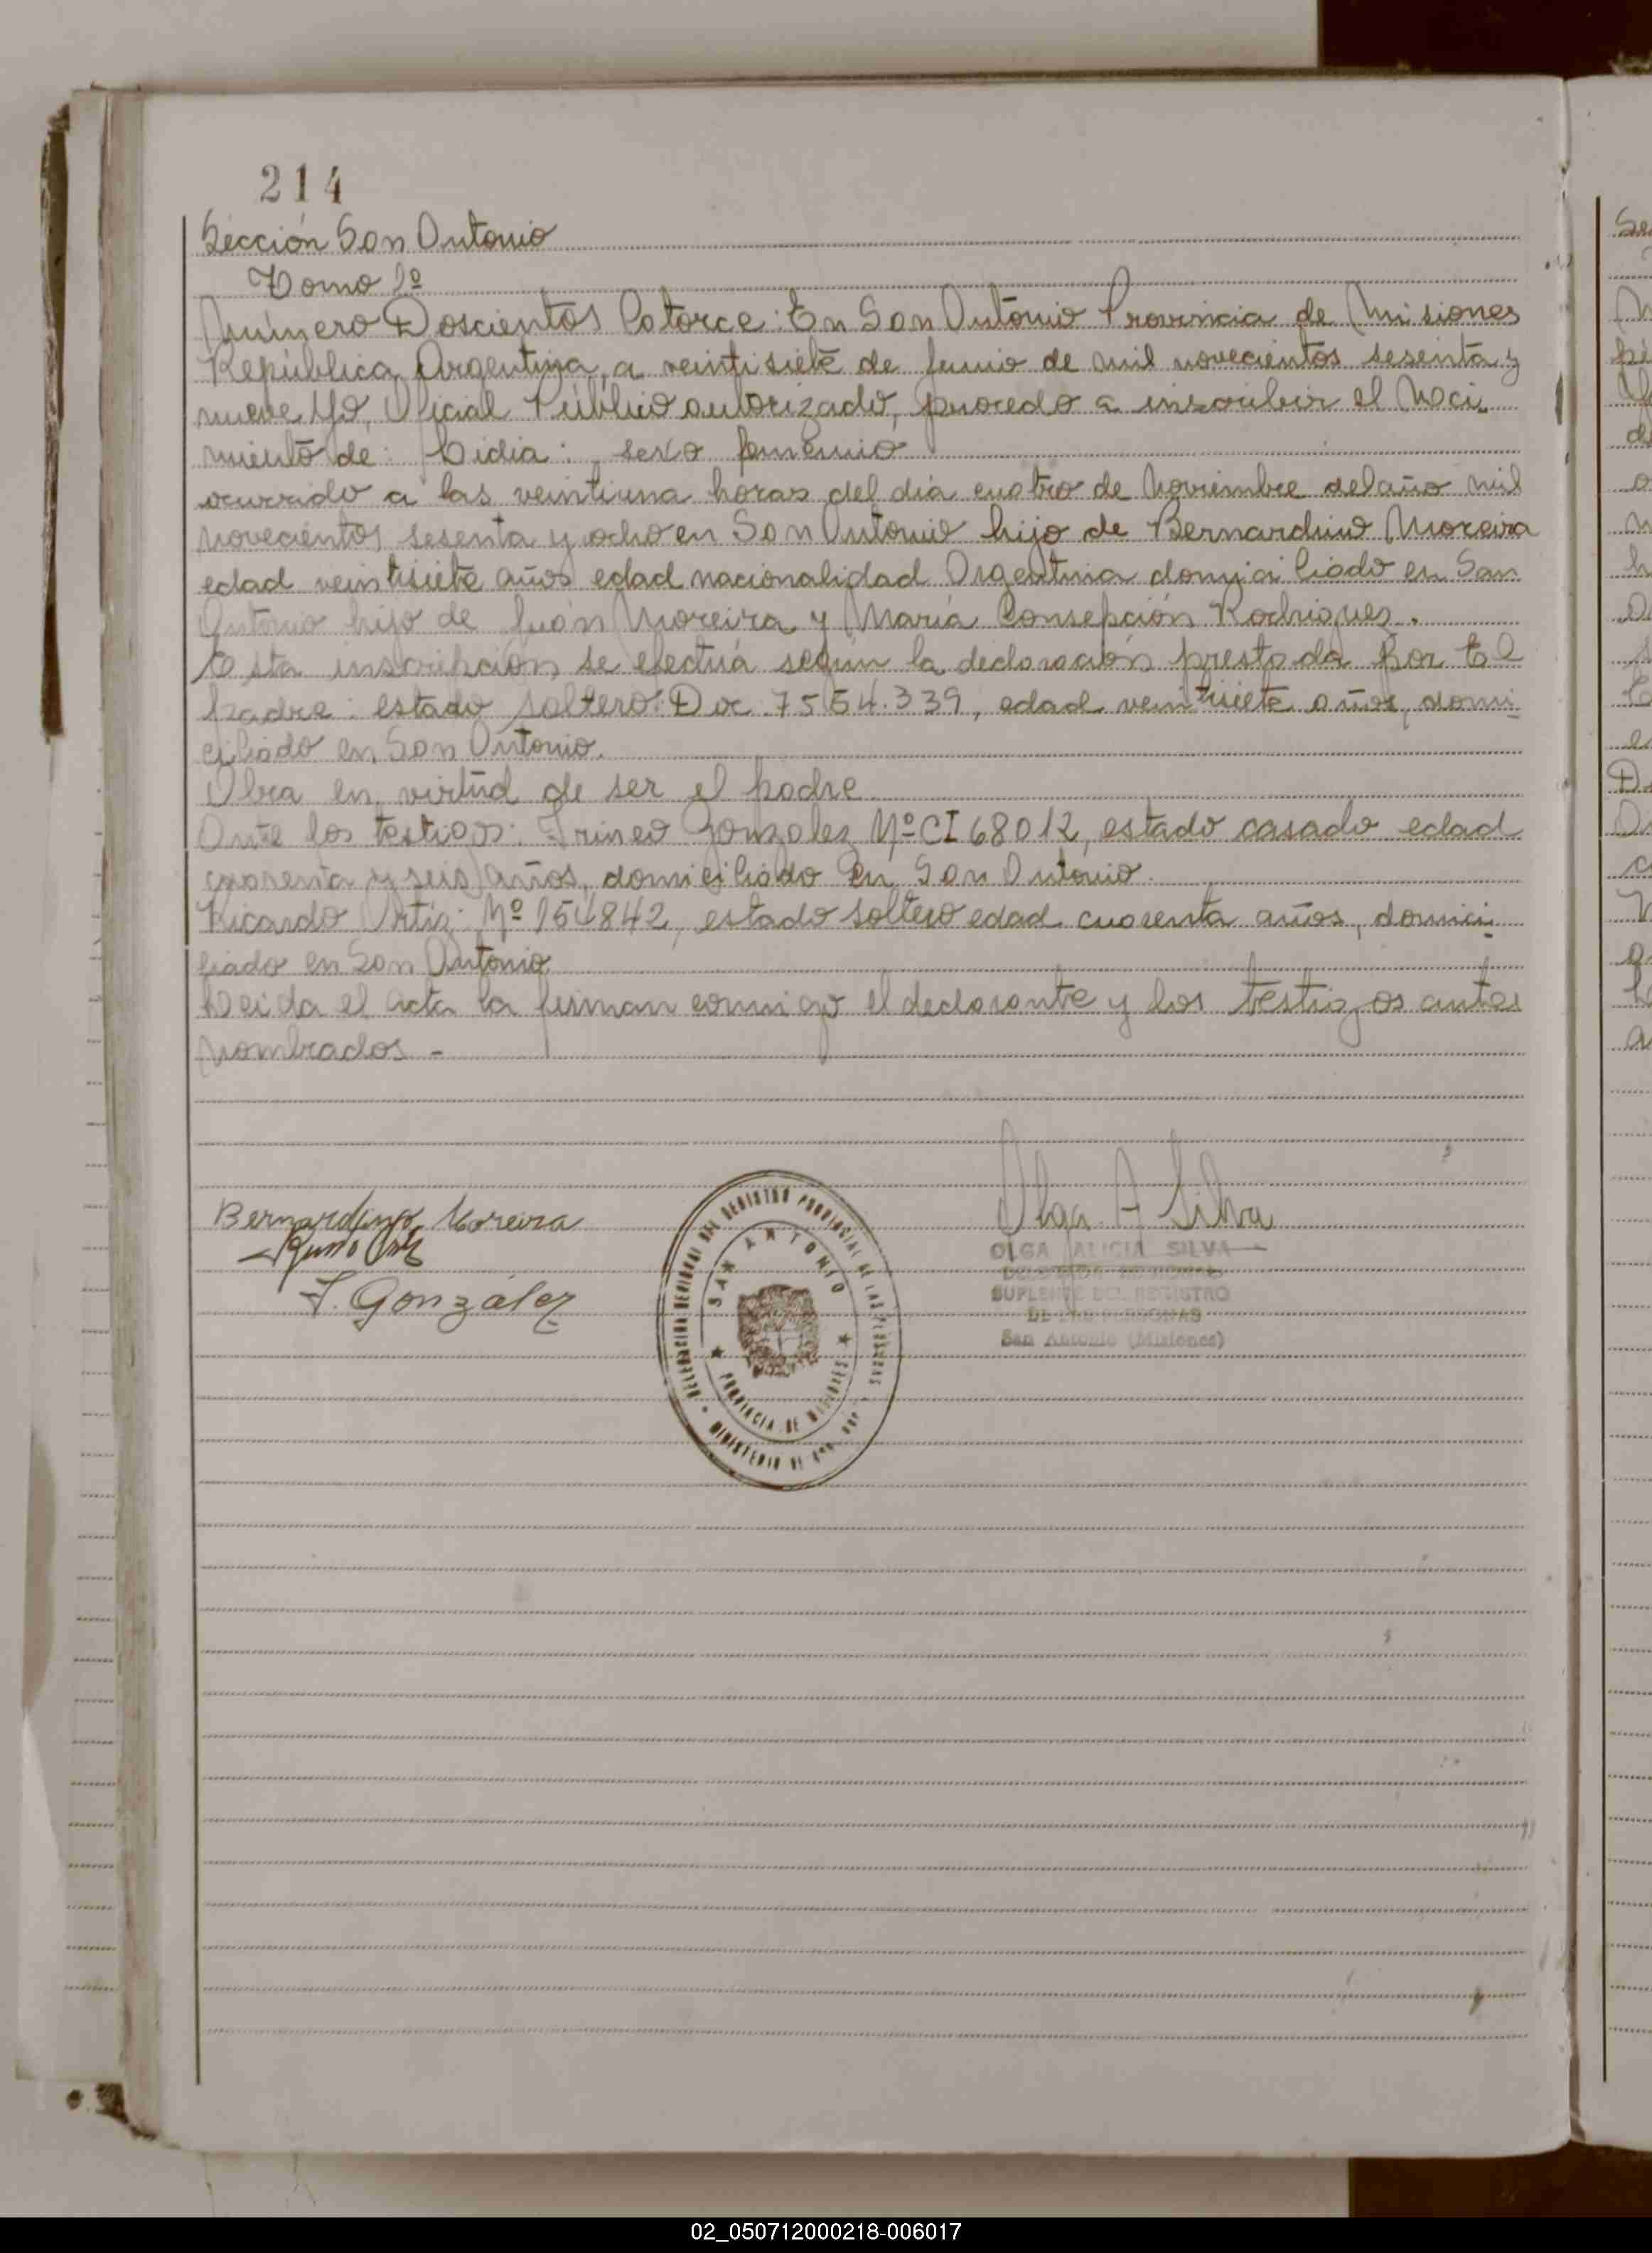 214
Sección San Antonio
Tomo 1º
Número Doscientos Catorce: En San Antonio Provincia de Misiones
República Argentina, a veintisiete de Junio de mil novecientos sesenta y
nueve Yo, Oficial Público autorizado, procedo a inscribir el Naci
miento de: Lidia: sexo femenino
ocurrido a las veintiuna horas del día cuatro de Noviembre del año mil
novecientos sesenta y ocho en San Antonio hijo de Bernardino Moreira
edad veintisiete años edad nacionalidad Argentina domiciliado en San
Antonio hijo de Juán Moreira y María Consepción Rodrigues.
Esta inscripción se efectuá según la declaración prestada por El
padre: estado soltero: Doc. 7554.339, edad veintisiete años, domi
ciliado en San Antonio.
Obra en virtud de ser el padre
Ante los testigos: Irineo Gonzalez Nº CI 68012, estado casado edad
cuarenta y seis años, domiciliado en San Antonio.
Ricardo Ortiz: Nº 154842, estado soltero edad cuarenta años, domici
liado en San Antonio
Leida el acta la firman conmigo el declarante y los testigos antes
nombrados -
Bernardino Moreira
Olga A Silva
J. González
OLGA ALICIA SILVA
SUPLENTE DEL REGISTRO
DE LAS PERSONAS
San Antonio (Misiones)
DELEGACION SECCIONAL DEL REGISTRO PROVINCIAL DE LAS PERSONAS
SAN ANTONIO
PROVINCIA DE MISIONES
MINISTERIO DE
02_050712000218-006017